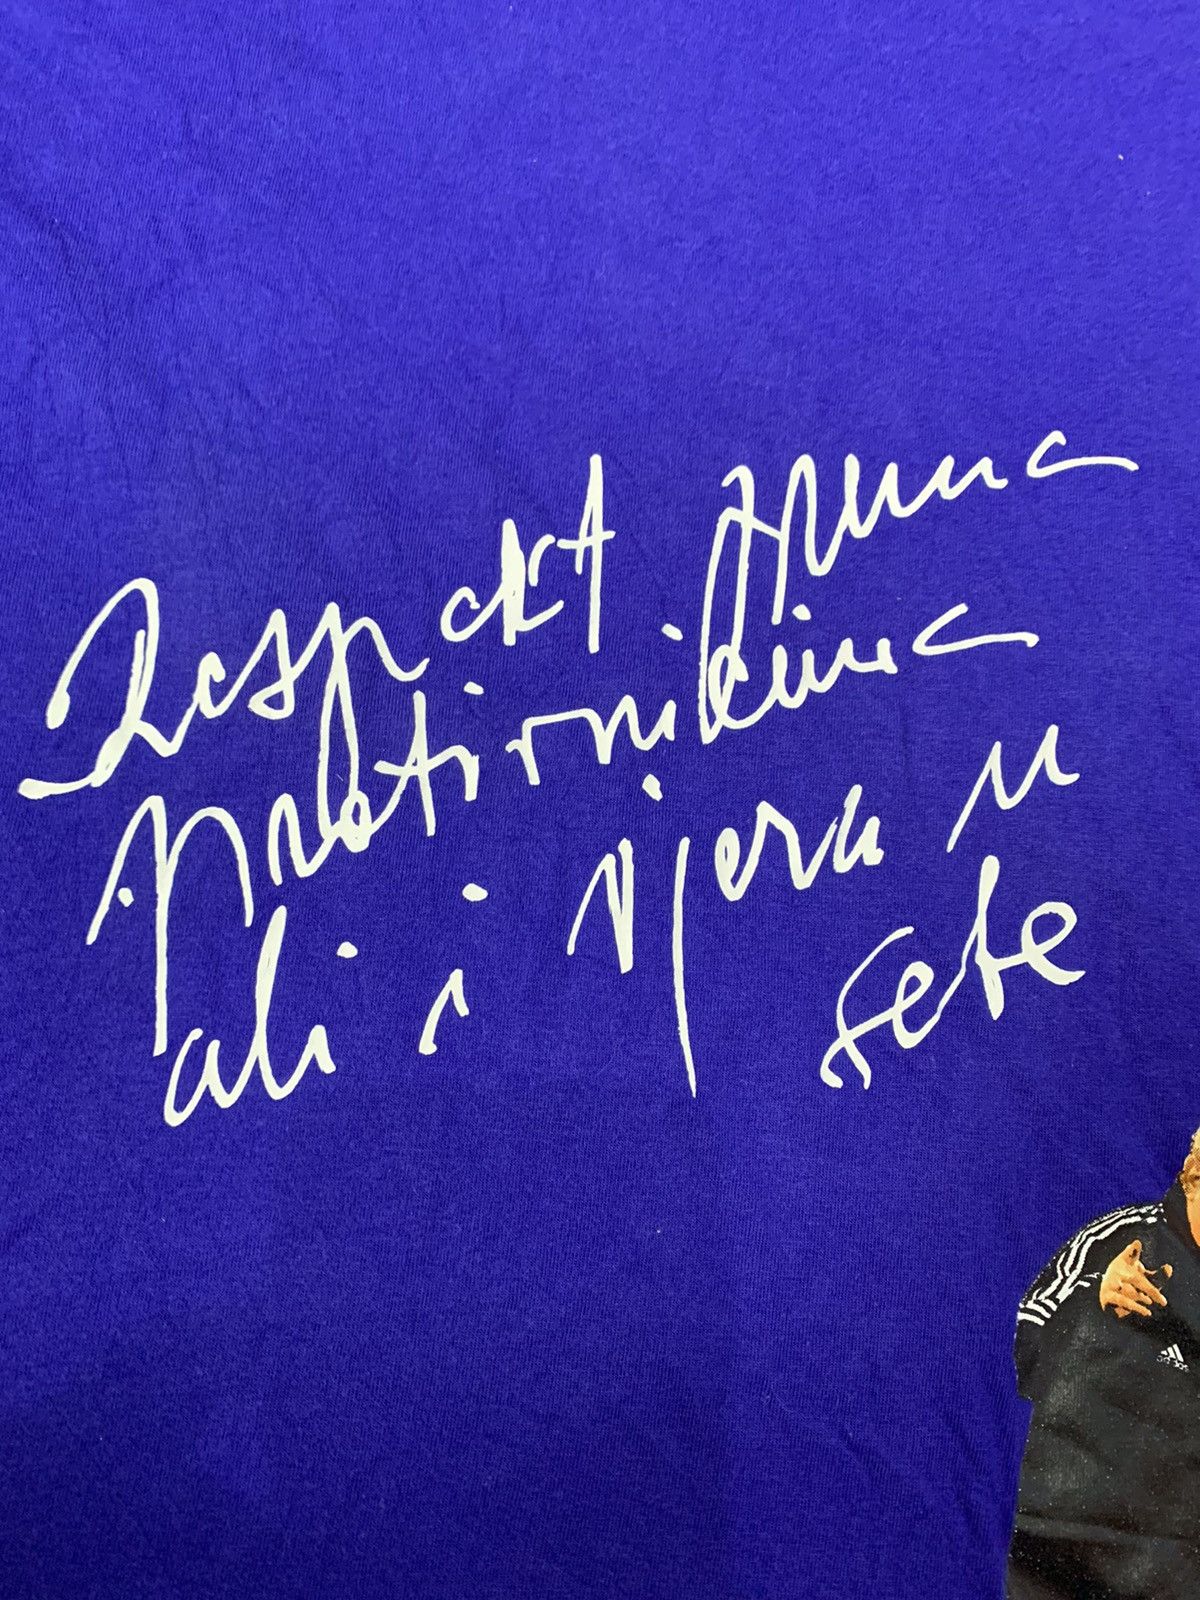 Respekt prema
protivnicima
ali i vjera u
sebe
adidas